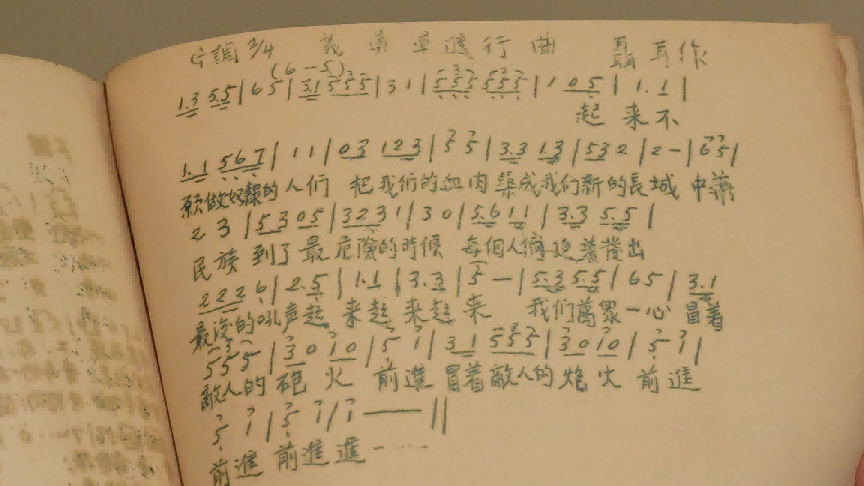 G調 2/4 義勇軍進行曲 聶耳作
(6-5)
1.3 5.5 | 6 5 | 3.1 5 5 5 | 3 1 | 5 5 5 5 5 5 | 1 0 5 | 1. 1 |
起 来 不
1.1 5 6 7 | 1 1 | 0 3 1 2 3 | 5 5 | 3.3 1.3 | 5 3 2 | 2 - | 6 5 |
願做奴隸的人们 把我们的血肉築成我们新的長城 中華
2 3 | 5 3 0 5 | 3 2 3 1 | 3 0 | 5.6 1 1 | 3.3 5.5 |
民族 到了最危險的時候 每個人被迫着發出
2 2 2 6 | 2. 5 | 1. 1 | 3. 3 | 5 - | 5.3 5.5 | 6 5 | 3.1
最後的吼声起 来起 来起 来 我们萬眾一心 冒着
5 5 5 | 3 0 1 0 | 5 1 | 3 1 5 5 5 | 3 0 1 0 | 5 1 |
敵人的 砲 火 前進 冒着敵人的炮火 前進
5 1 | 5 1 | 1 —— ||
前進 前進 進……